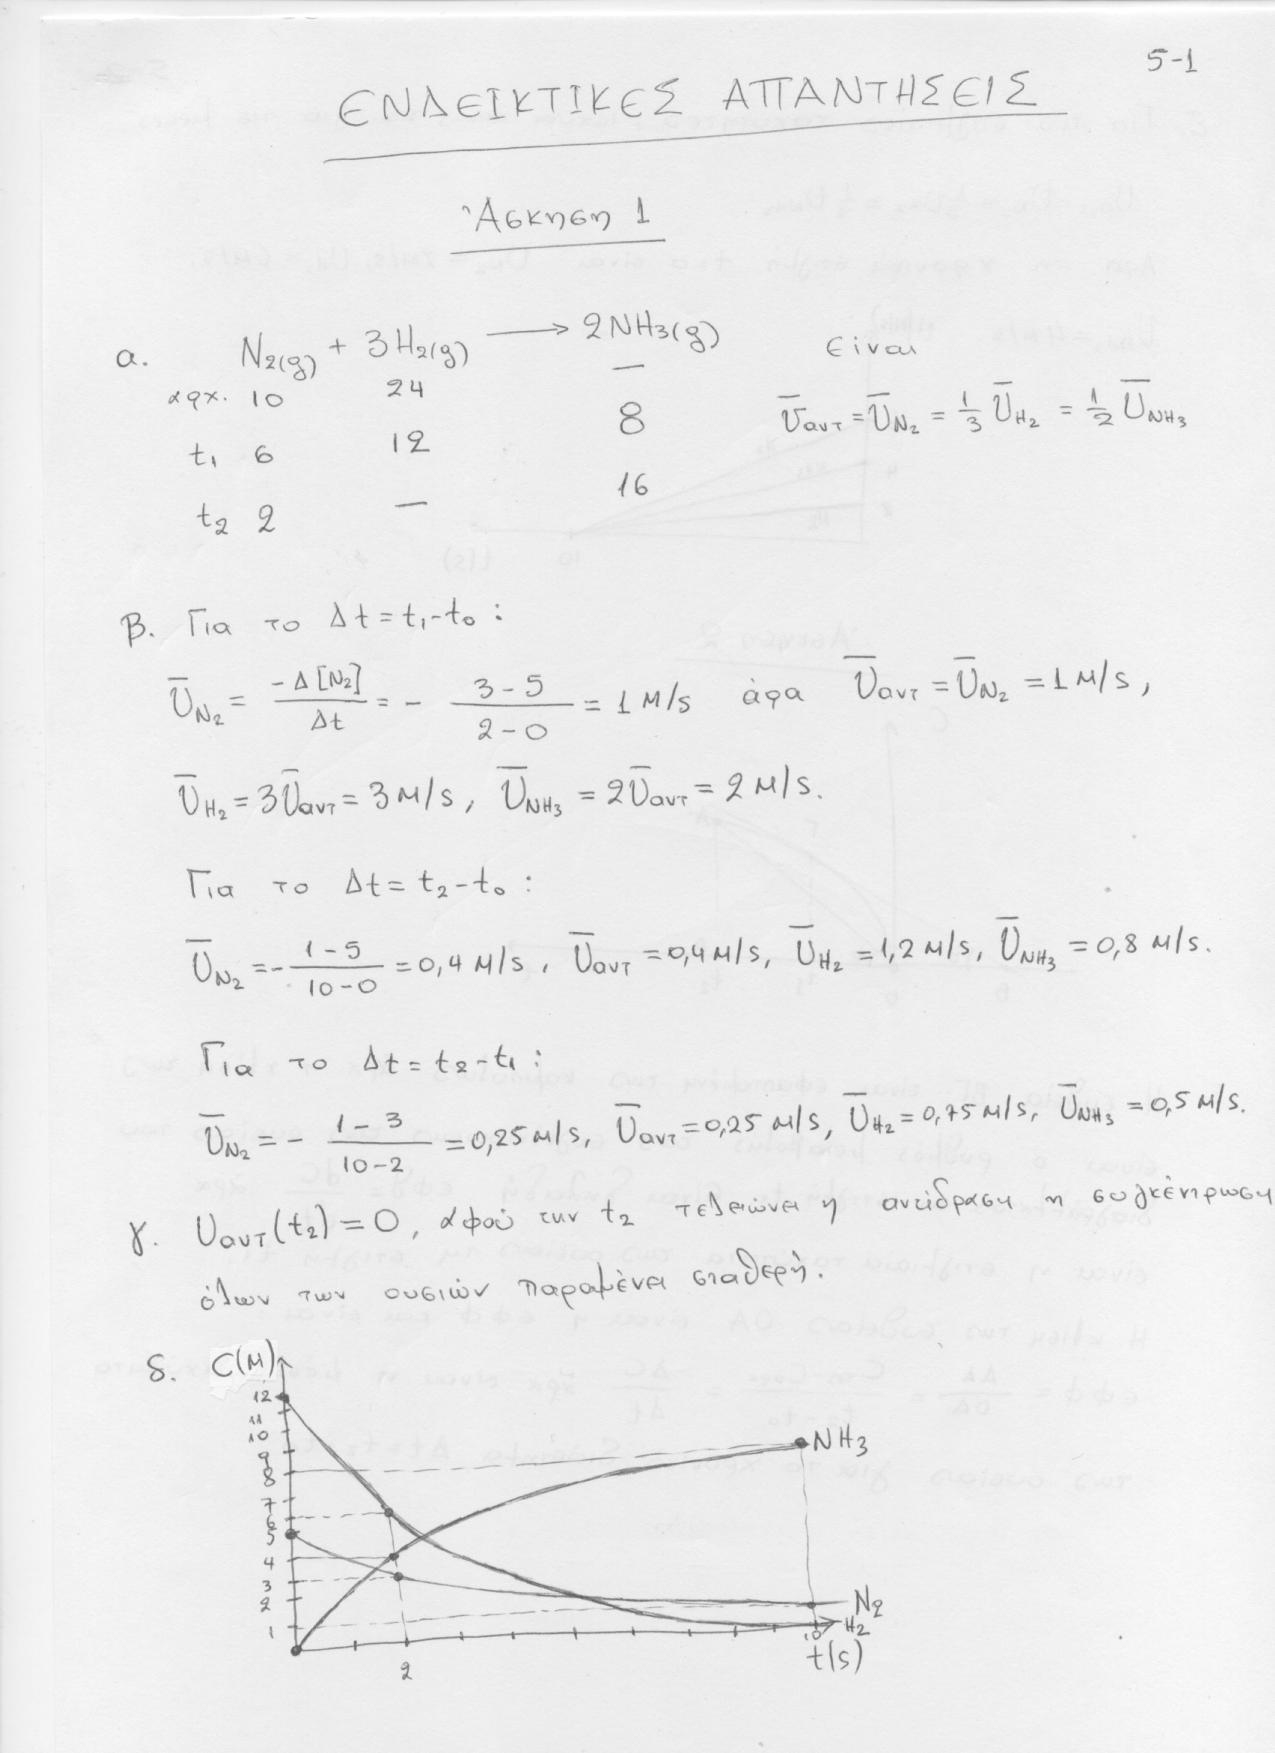 5-1
ΕΝΔΕΙΚΤΙΚΕΣ ΑΠΑΝΤΗΣΕΙΣ
Άσκηση 1
α. N2(g) + 3H2(g) ⟶ 2NH3(g) είναι
αρχ. 10 24 —
t1 6 12 8 ῡαντ = ῡN2 = 1/3 ῡH2 = 1/2 ῡNH3
t2 2 — 16
β. Για το Δt = t1-t0 :
ῡN2 = -Δ[N2]/Δt = - (3-5)/(2-0) = 1 M/s άρα ῡαντ = ῡN2 = 1 M/s,
ῡH2 = 3ῡαντ = 3 M/s, ῡNH3 = 2ῡαντ = 2 M/s.
Για το Δt = t2-t0 :
ῡN2 = - (1-5)/(10-0) = 0,4 M/s, ῡαντ = 0,4 M/s, ῡH2 = 1,2 M/s, ῡNH3 = 0,8 M/s.
Για το Δt = t2-t1 :
ῡN2 = - (1-3)/(10-2) = 0,25 M/s, ῡαντ = 0,25 M/s, ῡH2 = 0,75 M/s, ῡNH3 = 0,5 M/s.
γ. υαντ(t2) = 0, αφού την t2 τελειώνει η αντίδραση η συγκέντρωση
όλων των ουσιών παραμένει σταθερή.
δ. C(M)
12
11
10
9
8
7
6
5
4
3
2
1
NH3
N2
H2
2
10
t(s)